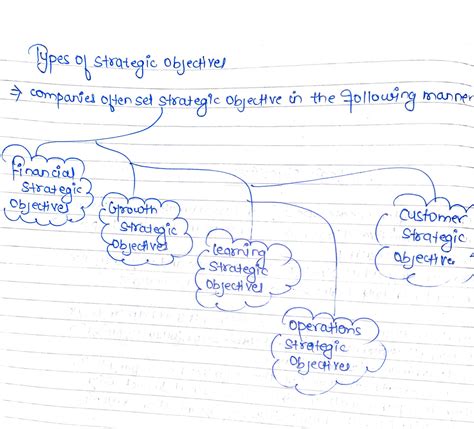 Types of Strategic Objectives
⇒ companies often set strategic objective in the following manner
Financial
Strategic
Objectives
Growth
Strategic
Objectives
Learning
Strategic
Objectives
Operations
Strategic
Objectives
Customer
Strategic
Objective